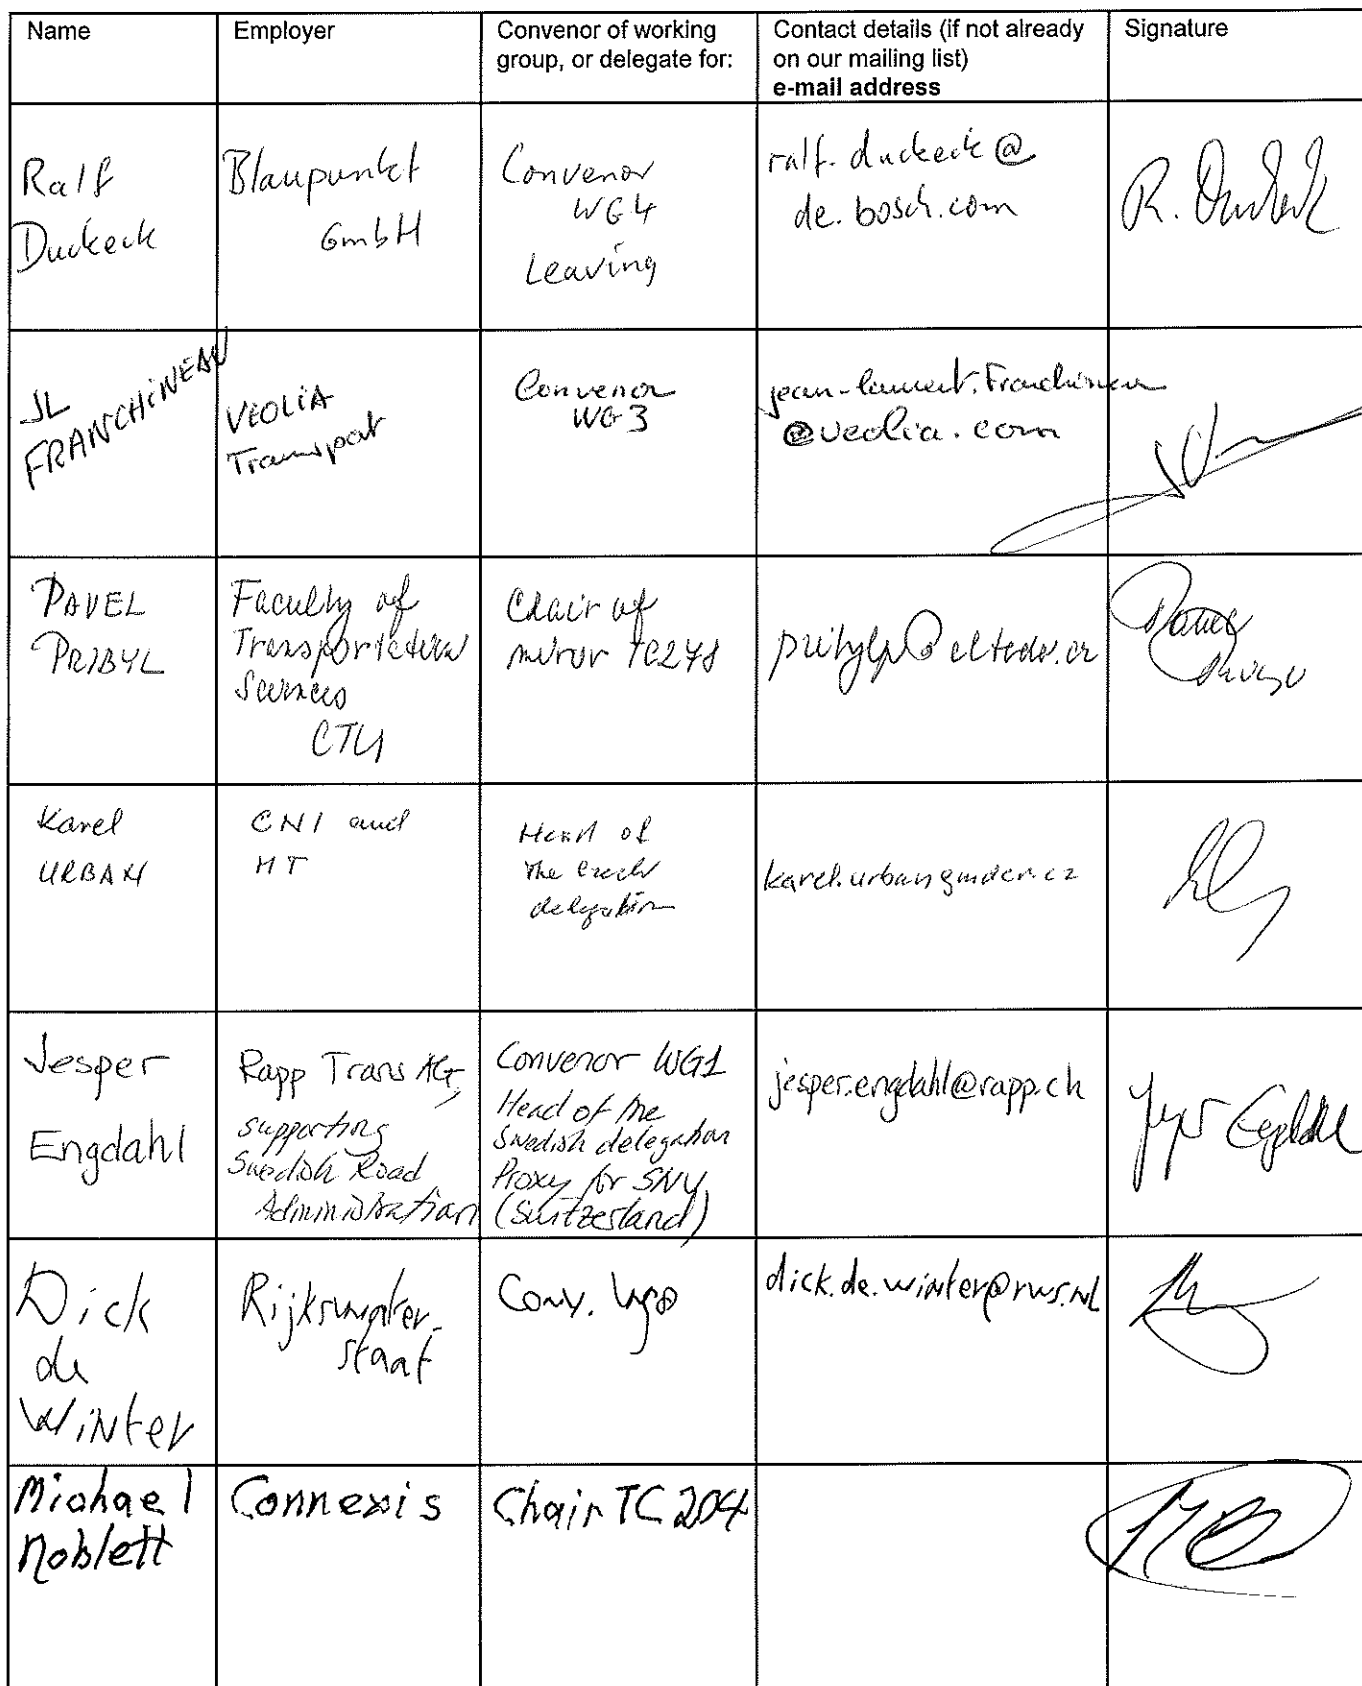 Name
Employer
Convenor of working
group, or delegate for:
Contact details (if not already
on our mailing list)
e-mail address
Signature
Ralf
Duckeck
Blaupunkt
GmbH
Convenor
WG4
Leaving
ralf.duckeck@
de.bosch.com
R. Duckeck
JL
FRANCHINEAU
VEOLIA
Transport
Convenor
WG3
jean-laurent.Franchineau
@veolia.com
PAVEL
PRIBYL
Faculty of
Transportation
Sciences
CTU
Chair of
mirror TC278
pribylp@eltodo.cz
Pavel
Karel
URBAN
CNI and
MT
Head of
the Czech
delegation
Jesper
Engdahl
Rapp Trans AG,
supporting
Swedish Road
Administration
Convenor WG1
Head of the
Swedish delegation
Proxy for SNV
(Switzerland)
jesper.engdahl@rapp.ch
Jesper Engdahl
Dick
de
Winter
Rijkswater-
staat
Conv.
dick.de.winter@rws.nl
Michael
Noblett
Connexis
Chair TC 204